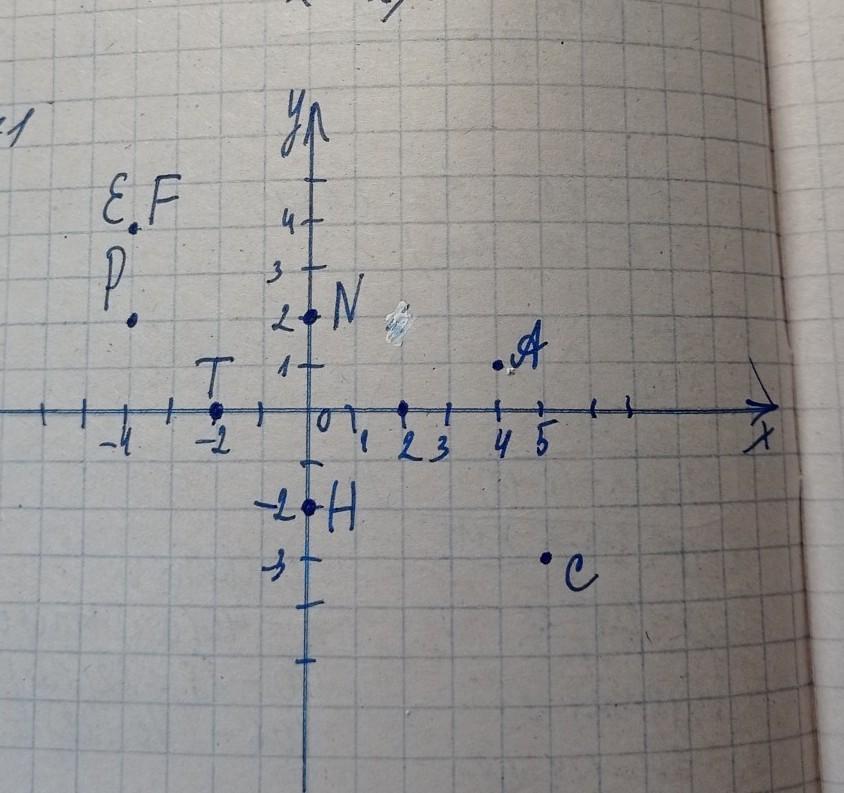 -1
y
E F
4
P
3
2 N
A
1
T
-4 -2 0 1 2 3 4 5 x
-2 H
-3
C